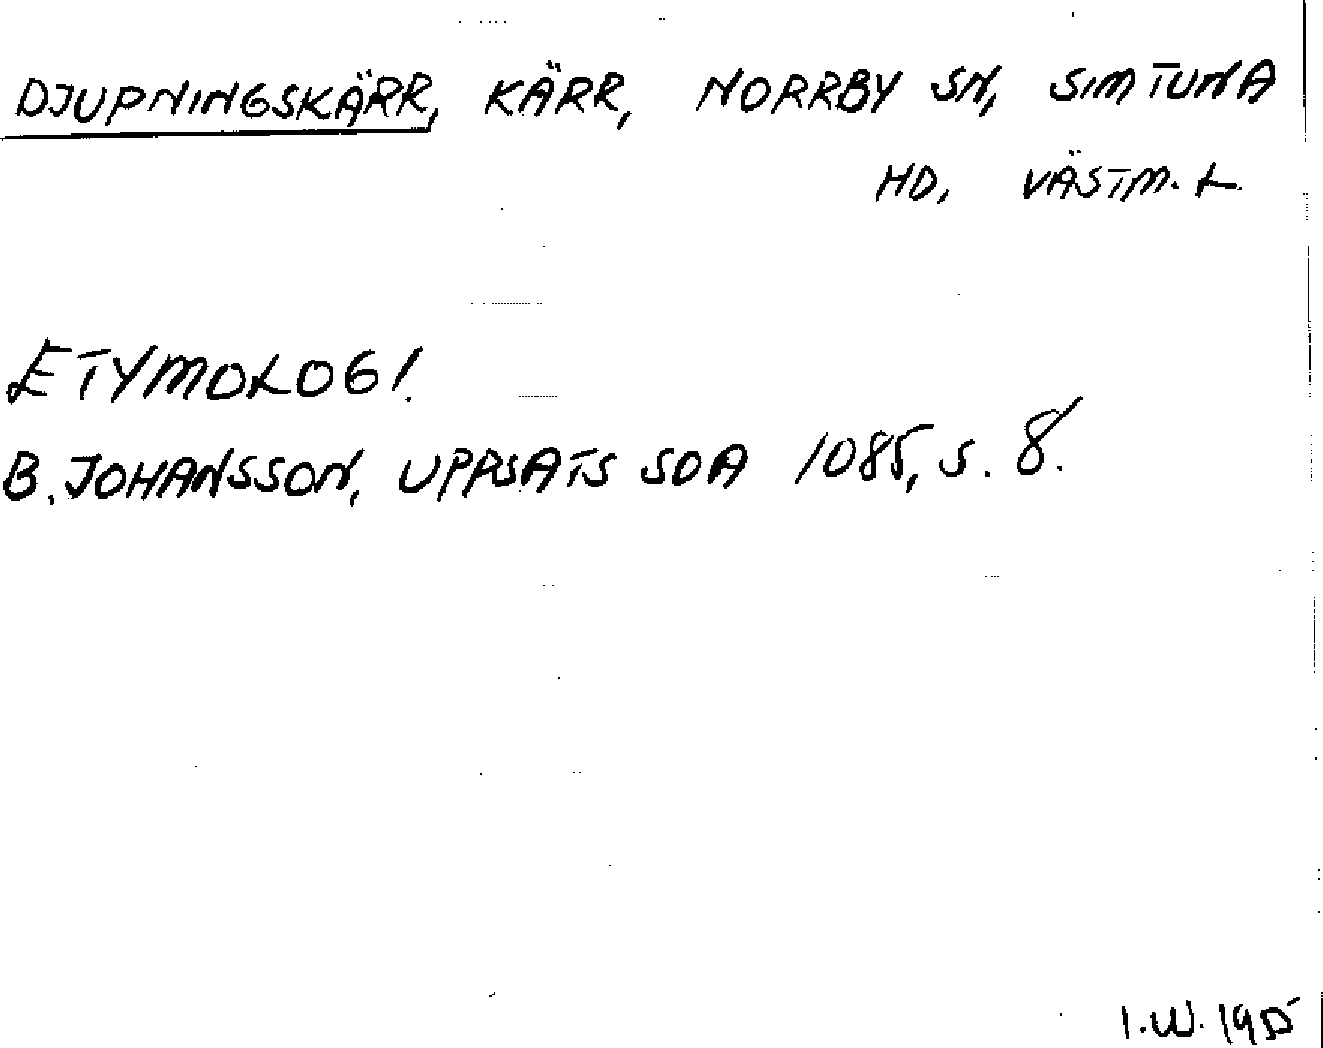 DJUPNINGSKÄRR, KÄRR, NORRBY SN, SIMTUNA
HD, VÄSTM. L.
ETYMOLOGI.
B. JOHANSSON, UPPSATS SOA 1085, s. 8.
I.W.